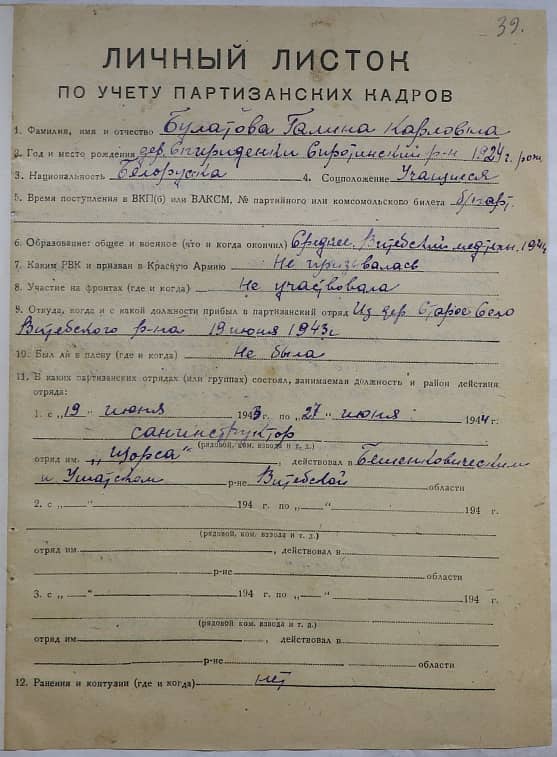 39.
ЛИЧНЫЙ ЛИСТОК
ПО УЧЕТУ ПАРТИЗАНСКИХ КАДРОВ
1. Фамилия, имя и отчество Булатова Галина Карловна
2. Год и место рождения дер. Спириденки Сиротинский р-н 1924 г. рож
3. Национальность Белоруска 4. Соцположение Учащиеся
5. Время поступления в ВКП(б) или ВЛКСМ, № партийного или комсомольского билета б/парт.
6. Образование: общее и военное (что и когда окончил) Среднее. Витебский медтехн. 1941г
7. Каким РВК и призван в Красную Армию Не призывалась
8. Участие на фронтах (где и когда) Не участвовала
9. Откуда, когда и с какой должности прибыл в партизанский отряд Из дер Старое Село
Витебского р-на 19 июня 1943г
10. Был ли в плену (где и когда) Не была
11. В каких партизанских отрядах (или группах) состоял, занимаемая должность и район действия
отряда:
1. с „19" июня 1943 г. по „27" июня 1944 г.
санинструктор
(рядовой, ком. взвода и т. д.)
отряд им. „Щорса", действовал в Бешенковическим
и Ушатском р-не Витебской области
2. с „—" 194 г. по „—" 194 г.
(рядовой, ком. взвода и т. д.)
отряд им , действовал в
р-не области
3. с „—" 194 г. по „—" 194 г.
(рядовой, ком. взвода и т. д.)
отряд им , действовал в
р-не области
12. Ранения и контузии (где и когда) нет